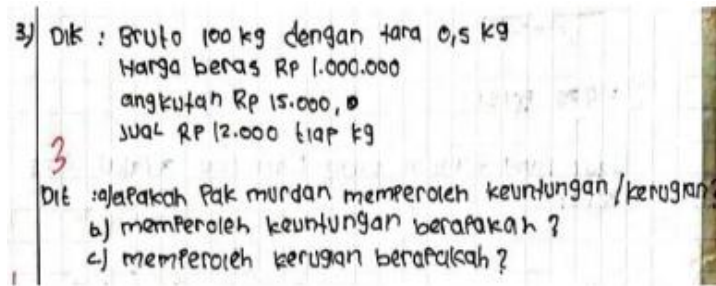 3) Dik : Bruto 100 kg dengan tara 0,5 kg
Harga beras Rp 1.000.000
angkutan Rp 15.000,
jual Rp 12.000 tiap kg
3
Dit : a) apakah Pak murdan memperoleh keuntungan/kerugian?
b) memperoleh keuntungan berapakah?
c) memperoleh kerugian berapakah?